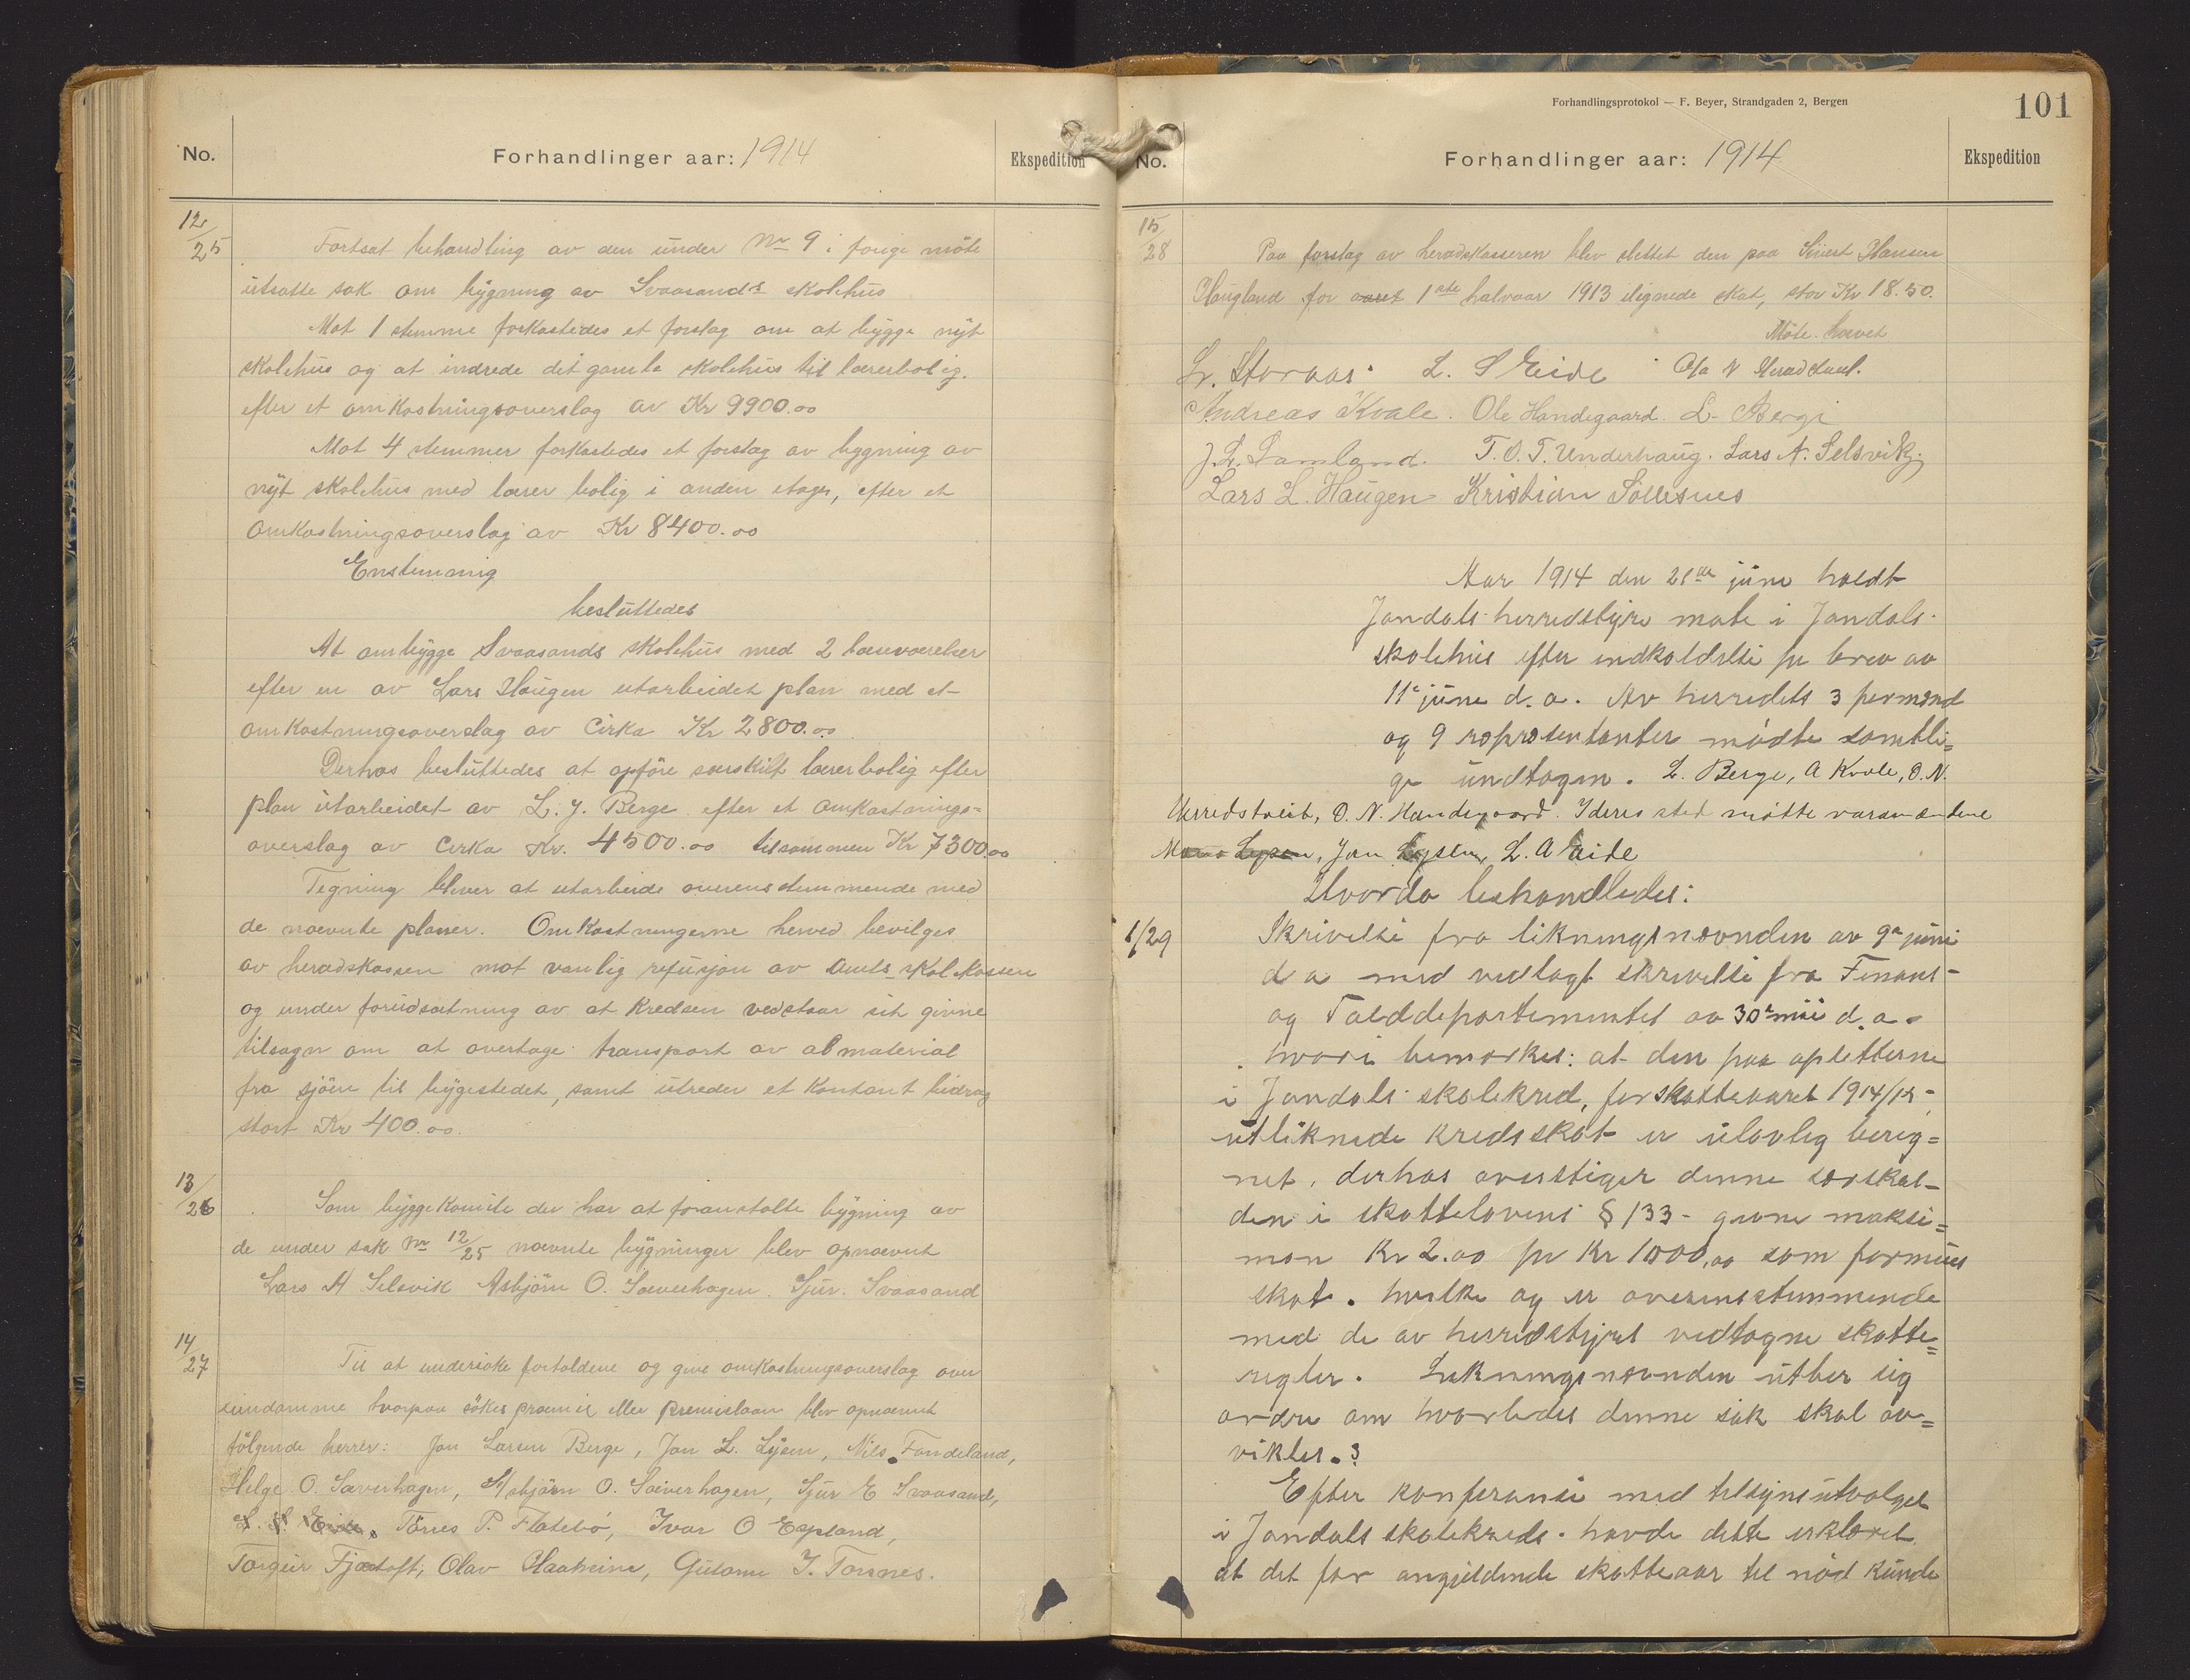 No.
Forhandlinger aar: 1914
Ekspedition
12/25
Fortsat behandling av den under Nr 9 i forige möte
utsatte sak om bygning av Svaasands skolehus
Mot 1 stemme forkastedes et forslag om at bygge nyt
skolehus og at indrede det gamle skolehus til lærerbolig.
efter et omkostningsoverslag av Kr 9900.00
Mot 4 stemmer forkastedes et forslag av bygning av
nyt skolehus med lærer bolig i anden etage, efter et
omkostningsoverslag av Kr 8400.00
Enstemmig
besluttedes
At ombygge Svaasands skolehus med 2 læseværelser
efter en av Lars Haugen utarbeidet plan med et
omkostningsoverslag av Cirka Kr 2800.00.
Derhos besluttedes at opföre særskilt lærerbolig efter
plan utarbeidet av L. J. Berge efter et omkostnings=
overslag av Cirka Kr. 4500.00 tilsammen Kr 7300.00
Tegning blever at utarbeide overensstemmende med
de nævnte planer. Omkostningerne herved bevilges
av heradskassen mot vanlig refusjon av Amts skolekassen
og under forudsætning av at Kredsen vedstaar sit givne
tilsagn om at overtage transport av al material
fra sjöen til bygestedet, samt utreder et Kontant bidrag
stort Kr 400.00.
13/26
Som byggekomite der har at foranstalte bygning av
de under sak Nr 12/25 nævnte bygninger blev opnævnt
Lars A Selsvik Asbjörn O. Sæverhagen. Sjur. Svaasand
14/27
Til at undersöke forholdene og give omkostningsoverslag over
eiendomme hvorpaa sökes præmie eller premielaan blev opnævnt
fölgende herrer: Jon Larsen Berge, Jon L. Lysen, Nils Fondeland,
Helge O. Sæverhagen, Asbjörn O. Sæverhagen, Sjur E Svaasand,
L. S. Eide, Törres P. Flatebö, Ivar O Espland,
Torgeir Fjætoft, Olav Haaheim, Gutorm J. Torsnes.
Forhandlingsprotokol — F. Beyer, Strandgaden 2, Bergen
101
No.
Forhandlinger aar: 1914
Ekspedition
15/28
Paa forslag av heradskasseren blev slettet den paa Sivert Hansen
Haugland for aaret 1ste halvaar 1913 ilignede skat, stor Kr 18.50.
Möte hævet
Lr. Storaas. L. S Eide Ola N
Andreas Kvale. Ole Handegaard. L. Bergi
J. L. Samland. T. O. T. Underhaug. Lars A. Selsvik.
Lars L. Haugen Kristian Sollesnes
Aar 1914 den 21de june holdt
Jondals herredstyre møte i Jondals
skolehus efter indkaldelse pr brev av
11te june d. a. Av herredets 3 formend
og 9 representanter mødte samtli=
ge undtagen. L. Berge, A Kvale, O. N.
Herredstveit, O. N. Handegaard. I deres sted møtte varamændene
Lysen, Jon Lysen, L. A Eide
Hvorda behandledes:
1/29
Skrivelse fra likningsnevnden av 9de juni
d a med vedlagt skrivelse fra Finans-
og Tolddepartementet av 30te mai d. a.
hvori bemerkes: at den paa opsitterne
i Jondals skolekred, for skatteaaret 1914/15-
utliknede kredsskat er ulovlig bereg=
net, derhos overstiger denne særskat-
den i skattelovens § 133- givne maksi=
mon Kr 2.00 pr Kr 1000,00 som formues
skat. hvilke og er overensstemmende
med de av herredstyret vedtagne skatte=
regler. Likningsnevnden utber sig
ordre om hvorledes denne sak skal av=
vikles.?
Efter konferanse med tilsynsutvalget
i Jondals skolekreds. havde dette erklæret
at det for angjeldende skatteaar til nød kunde